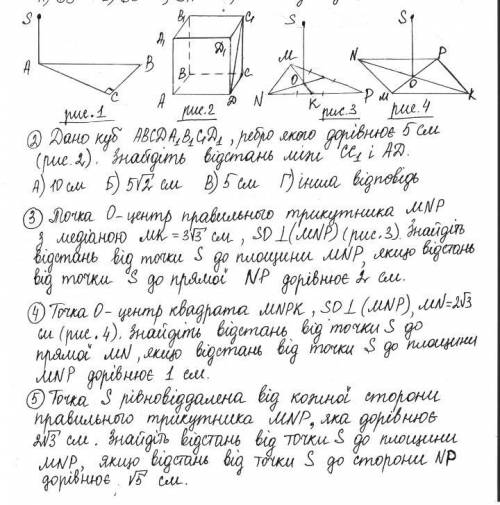 S
A
B
C
рис.1
B₁
C₁
A₁
D₁
B
C
A
D
рис.2
S
M
O
N
K
P
рис.3
S
N
P
O
M
K
рис.4
② Дано куб ABCDA₁B₁C₁D₁, ребро якого дорівнює 5 см
(рис.2). Знайдіть відстань між CC₁ і AD.
А) 10 см Б) 5√2 см В) 5 см Г) інша відповідь
③ Точка O - центр правильного трикутника MNP
з медіаною MK = 3√3 см, SO⊥(MNP) (рис.3). Знайдіть
відстань від точки S до площини MNP, якщо відстань
від точки S до прямої NP дорівнює 2 см.
④ Точка O - центр квадрата MNPK, SO⊥(MNP), MN=2√3
см (рис.4). Знайдіть відстань від точки S до
прямої MN, якщо відстань від точки S до площини
MNP дорівнює 1 см.
⑤ Точка S рівновіддалена від кожної сторони
правильного трикутника MNP, яка дорівнює
2√3 см. Знайдіть відстань від точки S до площини
MNP, якщо відстань від точки S до сторони NP
дорівнює √5 см.